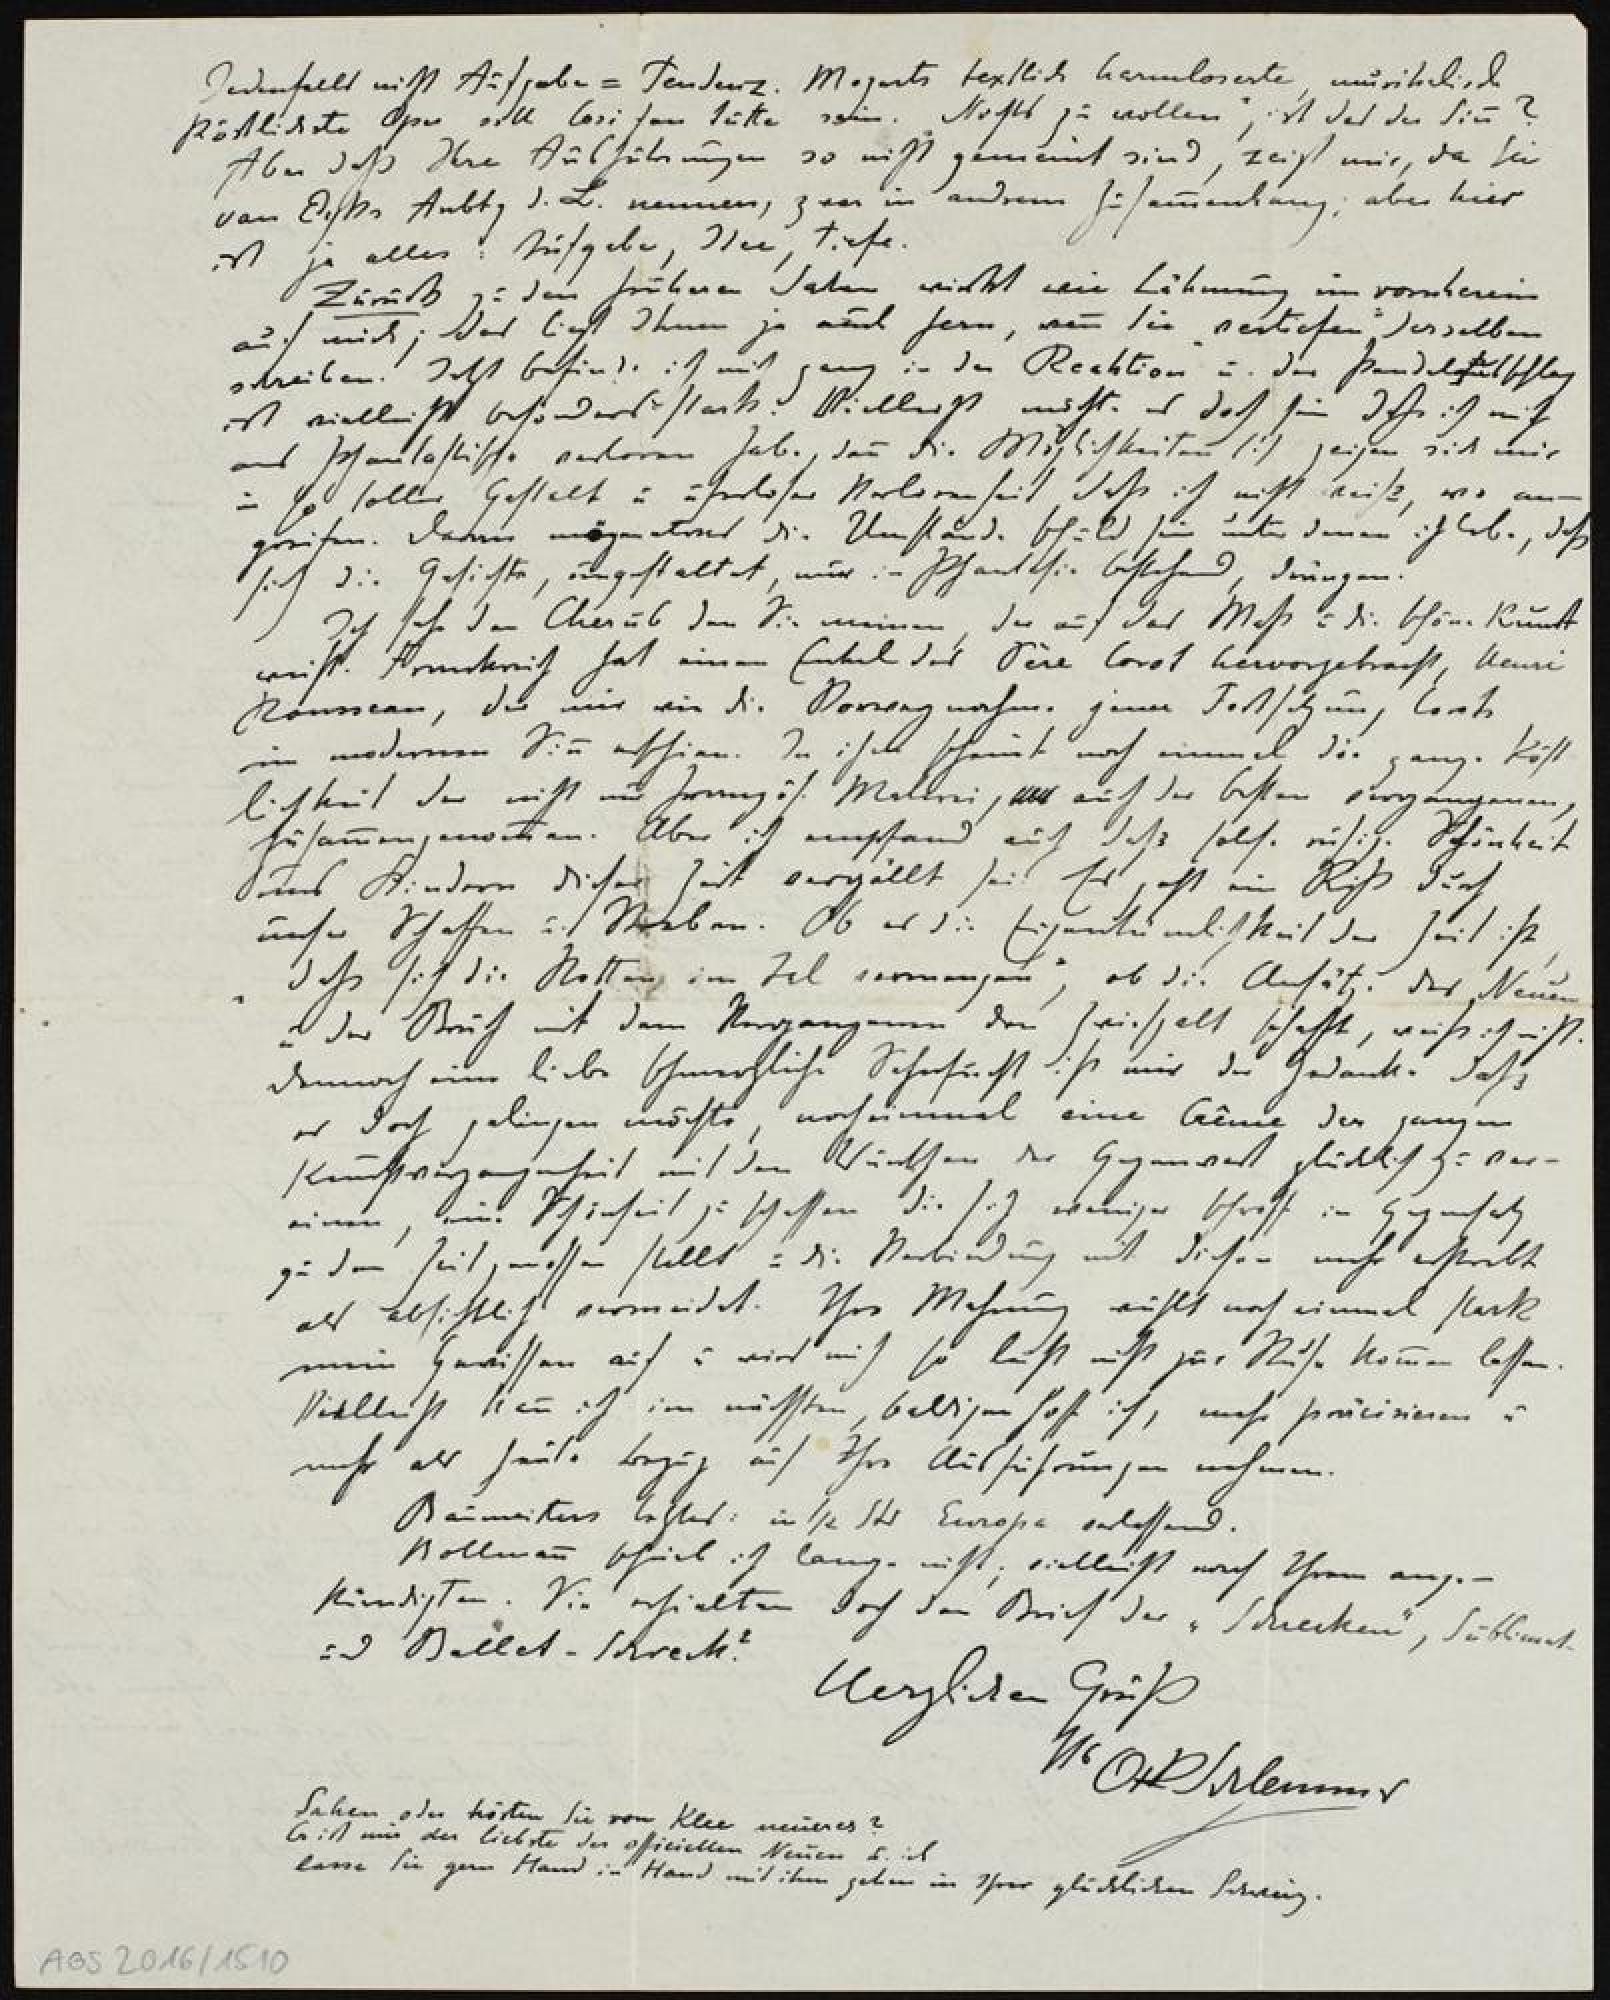 Jedenfalls nicht Aufgabe = Tendenz. Mozarts textlich harmloseste, musikalisch
köstlichste Oper soll Cosi fan tutte sein. Nichts zu wollen", ist das der Sinn?
Aber daß Ihre Ausführungen so nicht gemeint sind, zeigt mir, da Sie
van Eycks Anbtg d. L. nennen, zwar in andrem Zusammenhang; aber hier
ist ja alles: Aufgabe, Idee, Tiefe.
Zurück zu den früheren Daten wirkt wie Lähmung im vornherein
auf mich; das liegt Ihnen ja auch fern, wenn Sie "vertiefen" derselben
schreiben. Jetzt befinde ich mich ganz in der Reaktion u. der Pendelschlag
ist vielleicht besonders stark. Vielleicht möchte es doch sein daß ich mich
ans Phantastische verloren habe, denn die Möglichkeiten zeigen sich mir
in so toller Gestalt u uferloser Verlorenheit daß ich nicht weiß, wo an-
greifen. Daran mögen etwas die Umstände schuld sein unter denen ich lebe, daß
sich die Gesichte, ungestaltet, nur in Phantasie bestehend, drängen.
Ich sehe den Cherub den Sie meinen, der auf das Maß u die schöne Kunst
weist. Frankreich hat einen Enkel des Père Corot hervorgebracht, Henri
Rousseau, der mir wie die Vorwegnahme jener Fortsetzung Corots
im modernen Sinn erschien. In ihm scheint noch einmal die ganze Köst
lichkeit der nicht nur französ. Malerei, auch der besten vergangenen,
zusammengenommen. Aber ich empfand auch daß solche ruhige Schönheit
uns Kindern dieser Zeit vergällt sei. Es geht ein Riß durch
unser Schaffen u. Streben. Ob es die Eigentümlichkeit der Zeit ist,
"daß sich die Rotten im Tel vermengen", ob die Ansätze des Neuen
u der Bruch mit dem Vergangenen den Zwiespalt schafft, weiß ich nicht.
Dennoch eine liebe schmerzliche Sehnsucht ist mir der Gedanke daß
es doch gelingen möchte, nocheinmal eine Crême der ganzen
Kunstvergangenheit mit den Wünschen der Gegenwart glücklich zu ver-
einen, eine Schönheit zu schaffen die sich weniger schroff in Gegensatz
zu den Zeitgenossen stellt u die Verbindung mit diesen mehr erstrebt
als absichtlich vermeidet. Ihre Mahnung wühlt noch einmal stark
mein Gewissen auf u wird mich so leicht nicht zur Ruhe kommen lassen.
Vielleicht kann ich im nächsten, baldigen hoffe ich, mehr präcisieren u
mehr als heute bezug auf Ihre Ausführungen nehmen.
Baumeisters letztes: in Std Europa verlassend.
Bollmann schrieb ich lange nicht; vielleicht nach Ihrem ange-
kündigten. Sie erhielten doch den Brief der "Schrecken", Sublimat-
und Ballet-Schreck?
Herzlichen Gruß
Ihr Osk Schlemmer
Sahen oder hörten Sie von Klee neueres?
Er ist mir der liebste der officiellen Neuen u. ich
lasse Sie gern Hand in Hand mit ihm gehen in Ihrer glücklichen Schweiz.
ABS 2016/1510